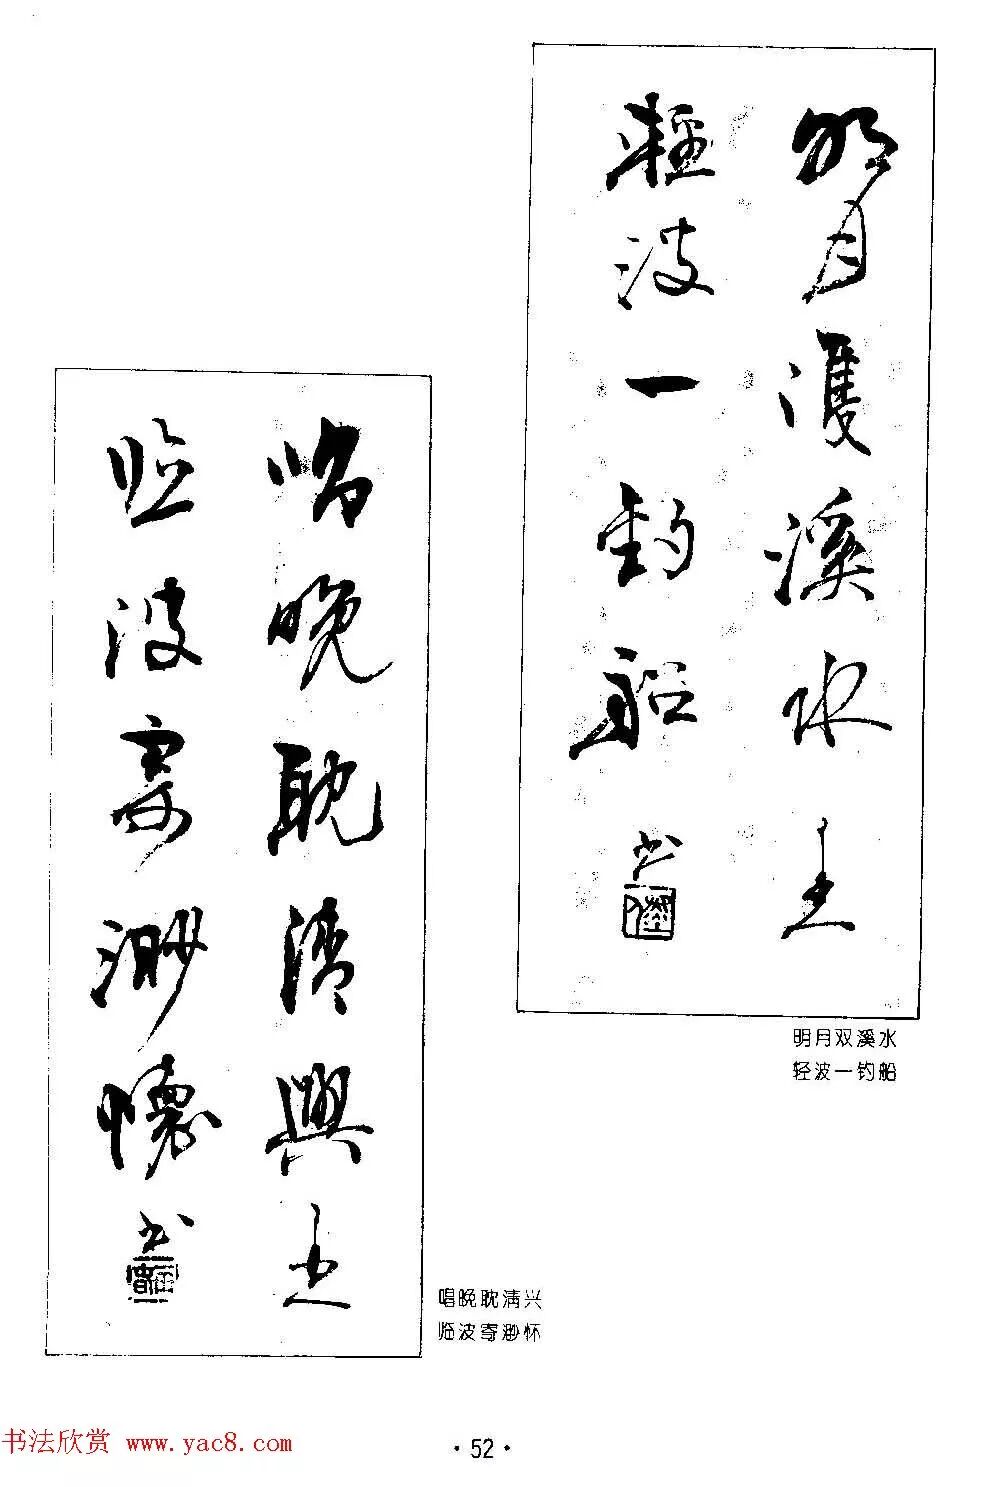 明月雙溪水
輕波一釣船
书
明月双溪水
轻波一钓船
唱晚耽清興
临波寄渺懷
书
唱晚耽清兴
临波寄渺怀
书法欣赏 www.yac8.com
·52·